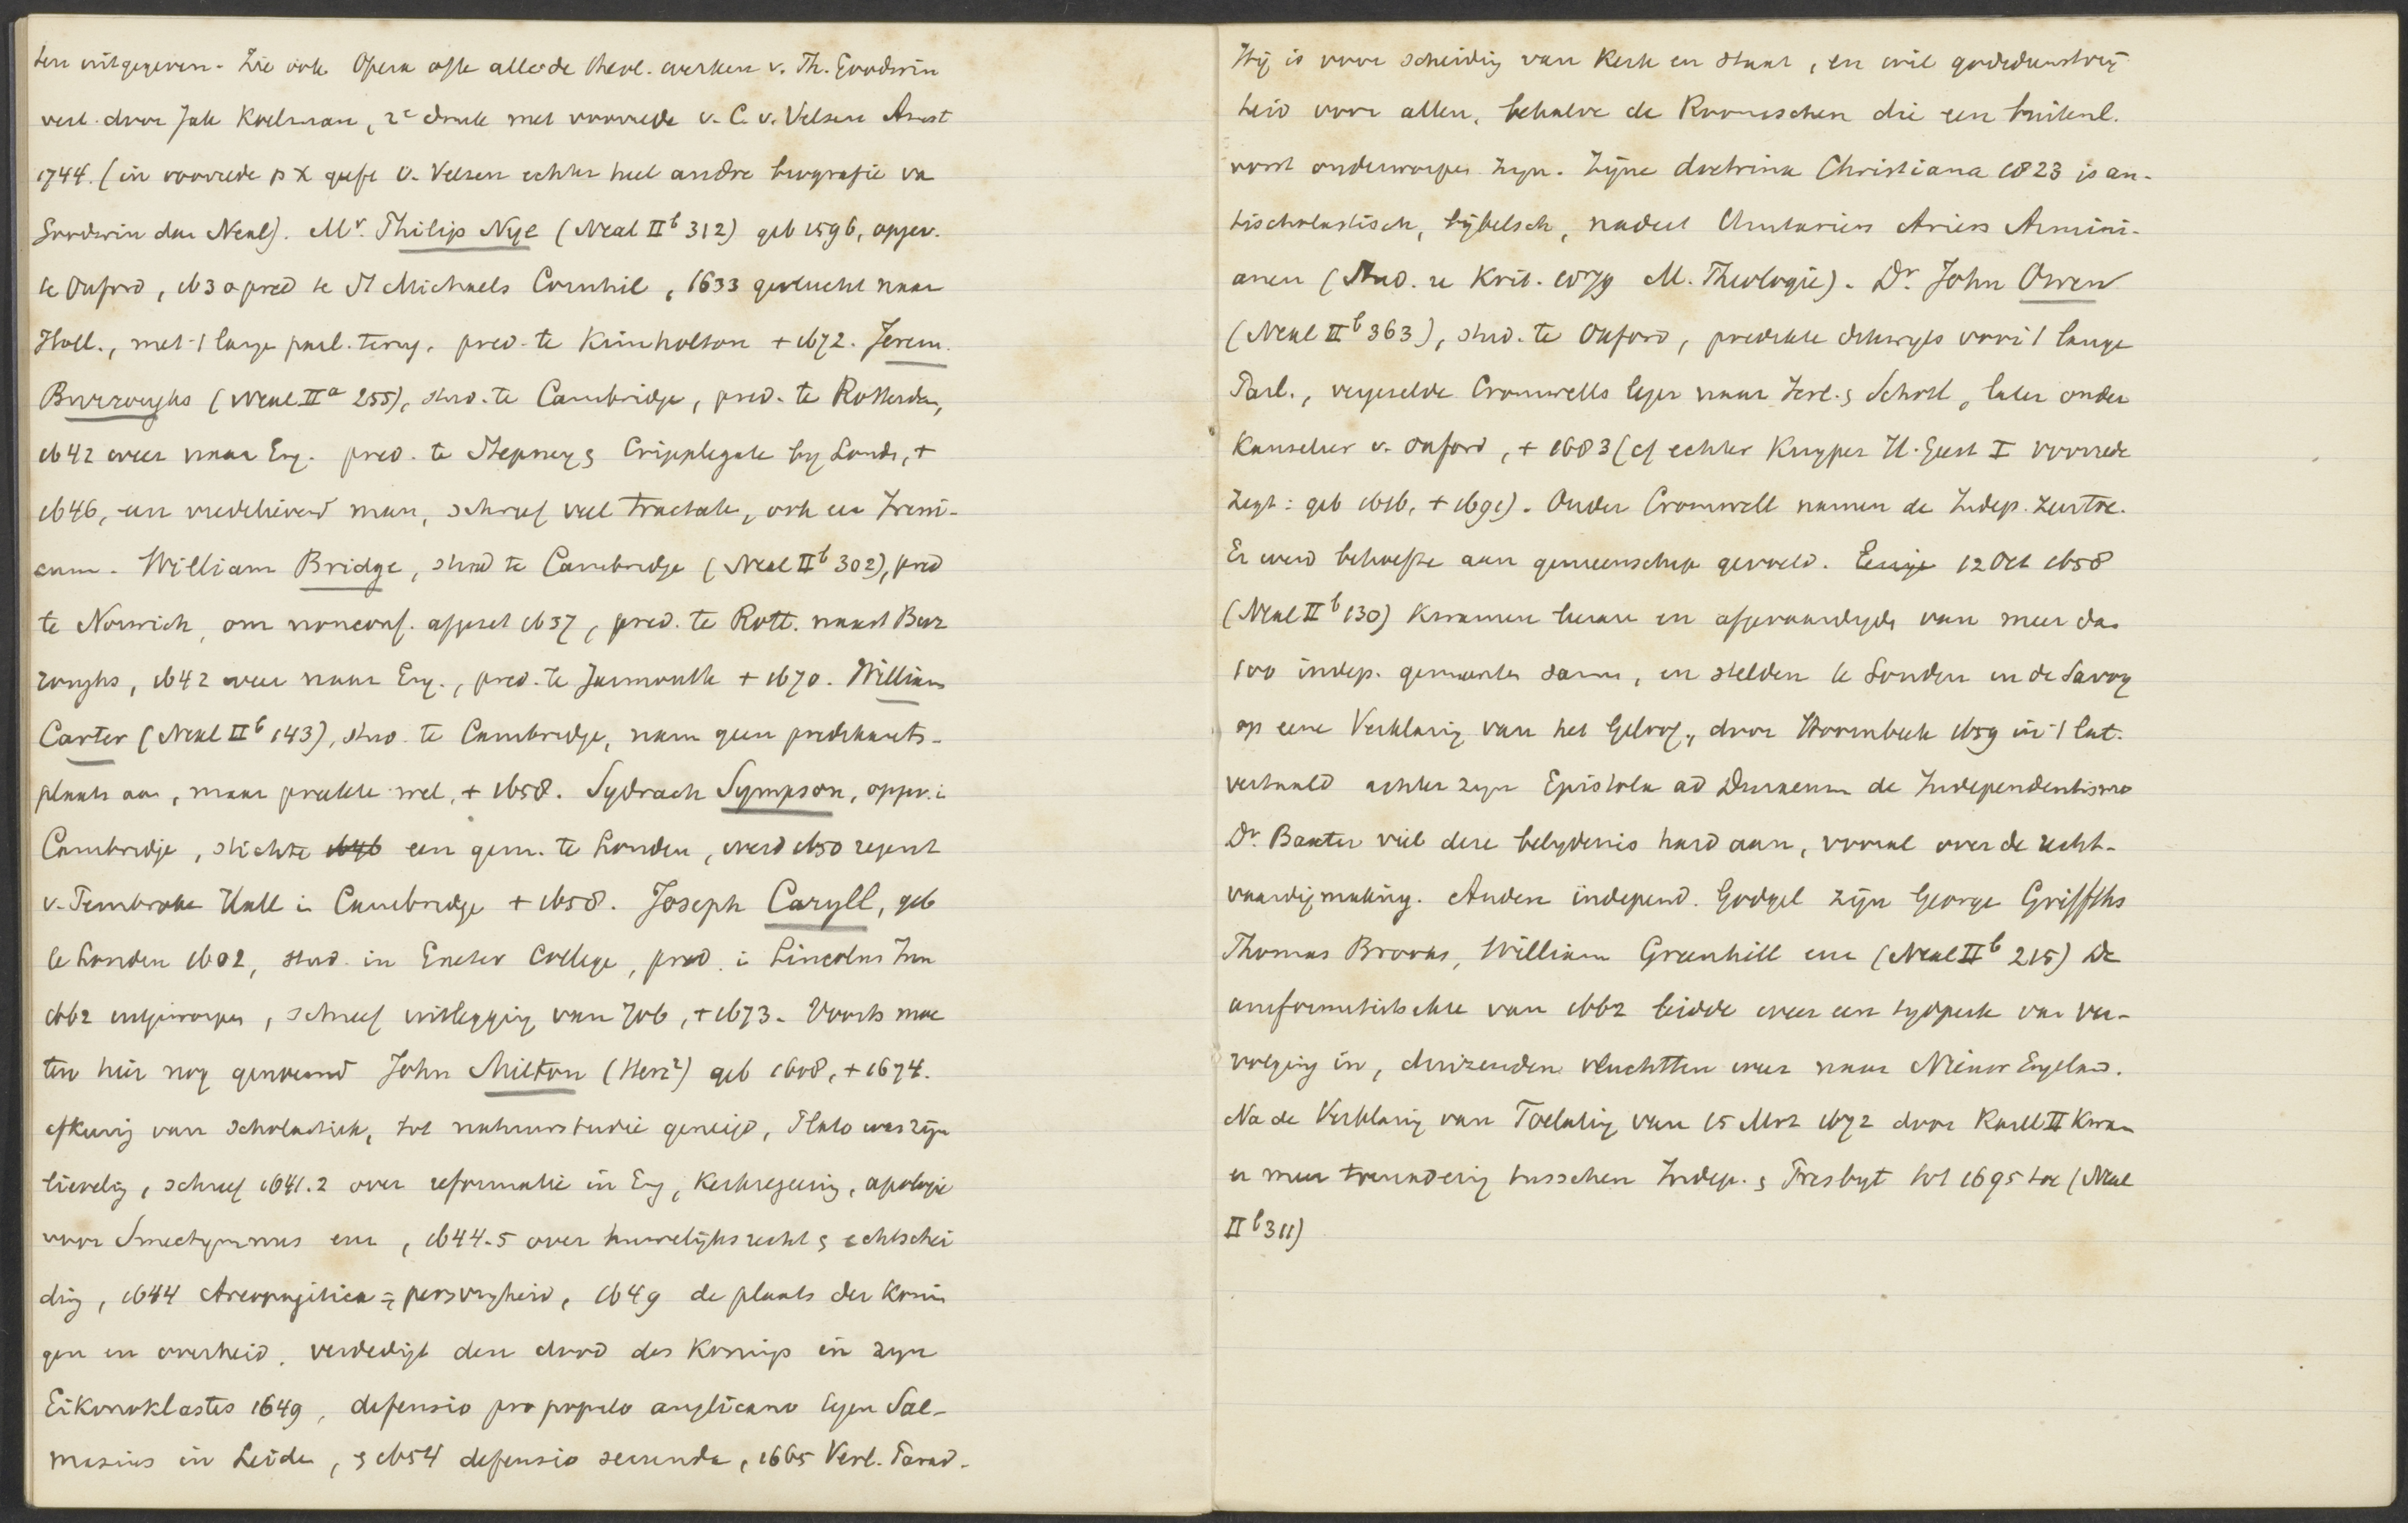 ten uitgegeven. Zie ook Opera ofte alle de theol. werken v. Th. Goodwin
vert. door Jak Koelman, 2e druk met voorrede v. C. v. Velzen Amst
1744. (in voorrede p X geeft v. Velzen echter heel andre biografie va
Goodwin dan Neal). Mr. Philip Nye (Neal IIb 312) geb 1596, opgev.
te Oxford, 1630 pred te St Michaels Cornhil, 1633 gevlucht naar
Holl., met 't lange parl. terug, pred. te Kimbolton + 1672. Jerem.
Burroughs (Neal IIa 255), stud. te Cambridge, pred. te Rotterdam,
1642 weer naar Eng. pred. te Stepney & Cripplegate by Londe, +
1646, een vredelievend man, schreef veel tractate, ook een Ireni-
cum. William Bridge, stud te Cambridge (Neal IIb 302), pred
te Norwich, om nonconf. afgezet 1637, pred. te Rott. naast Bur
roughs, 1642 weer naar Eng., pred. te Jarmouth + 1670. William
Carter (Neal IIb 143), stud. te Cambridge, nam geen predikants-
plaats aan, maar preekte wel, + 1658. Sydrach Sympson, opgev. i
Cambridge, stichtte 1646 een gem. te Londen, werd 1650 regent
v. Pembroke Hall i Cambridge + 1658. Joseph Caryll, geb
te Londen 1602, stud. in Exeter College, pred. i Lincolns Inn
1662 uitgeworpen, schreef uitlegging van Job, + 1673. Voorts moe
ten hier nog genoemd John Milton (Herz2) geb 1608, + 1674.
afkeerig van scholastiek, tot natuurstudie geneigd, Plato was zijn
lieveling, schreef 1641.2 over reformatie in Eng, Kerkregeering, apologie
voor Smectymnus enz, 1644-5 over huwelijksrecht & echtschei
ding, 1644 Areopagitica = persvryheid, 1649 de plaats der Konin
gen en overheid, verdedigt den dood des Konings in zyn
Eikonoklastes 1649, defensio pro populo anglicano tegen Sal-
masius in Leide, & 1654 defensio secunda, 1665 Verl. Parad.
Hij is voor scheiding van Kerk en Staat, en wil godsdienstvrij
heid voor allen, behalve de Roomschen die een buitenl.
vorst onderworpen zyn. Zijne doctrina Christiana 1823 is an-
tischolastisch, bijbelsch, nadert Unitariers Ariers Armini-
anen (Stud. u Krit. 1879 M. Theologie). Dr. John Owen
(Neal IIb 363), stud. te Oxford, predikte dikwyls voor 't lange
Parl., vergezelde Cromwells leger naar Ierl. & Schotl, later onder
Kanselier v. Oxford, + 1683 (cf echter Kuyper H. Geest I voorrede
zegt: geb 1616, + 1691). Onder Cromwell namen de Indep. zeer toe.
Er werd behoefte aan gemeenschap gevoeld. Eenige 12 Oct 1658
(Neal IIb 130) Kwamen leeraren en afgevaardigde van meer dan
100 indep. gemeenten samen, en stelden te Londen in de Savoy
op eene Verklaring van het Geloof, door Hoornbeek 1659 in 't lat.
vertaald achter zyn Epistola ad Duraeum de Independentismo
Dr. Baxter viel deze belydenis hard aan, vooral over de recht-
vaardigmaking. Andere independ. Godgel zijn George Griffths
Thomas Brooks, William Greenhill enz (Neal IIb 215) De
uniformiteitsakte van 1662 leidde weer een tydperk van ver-
volging in, duizenden vluchtten weer naar Nieuw Engeland.
Na de Verklaring van Toelating van 15 Mrt 1672 door Karel II Kwam
er meer toenadering tusschen Indep. & Presbyt tot 1695 toe (Neal
IIb 311)